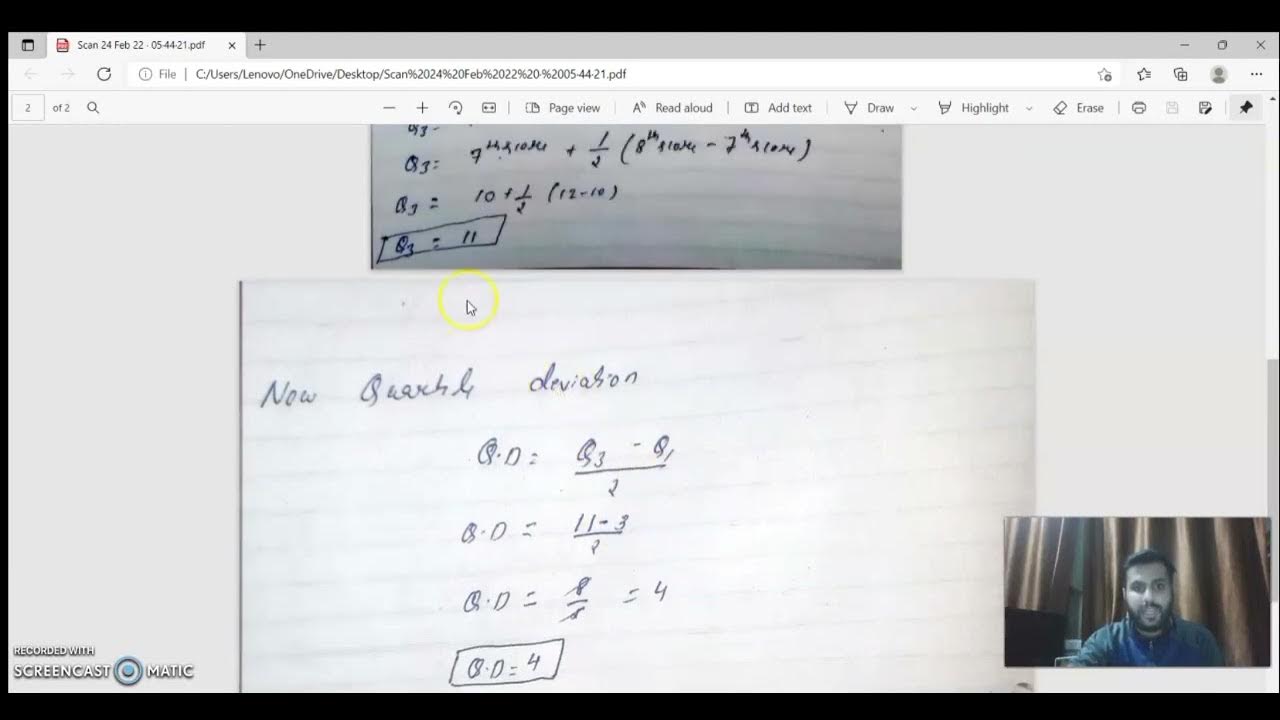 Scan 24 Feb 22 · 05·44·21.pdf
File C:/Users/Lenovo/OneDrive/Desktop/Scan%2024%20Feb%2022%20·%2005·44·21.pdf
2 of 2 Page view Read aloud Add text Draw Highlight Erase
Q3=
Q3= 7th score + 1/2 (8th score - 7th score)
Q3 = 10 + 1/2 (12-10)
Q3 = 11
Now Quartile deviation
Q.D = Q3 - Q1 / 2
Q.D = 11-3 / 2
Q.D = 8/2 = 4
Q.D = 4
RECORDED WITH
SCREENCAST MATIC